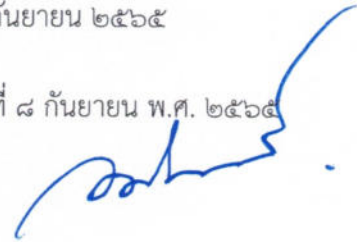 กันยายน ๒๕๖๕
ที่ ๘ กันยายน พ.ศ. ๒๕๖๕